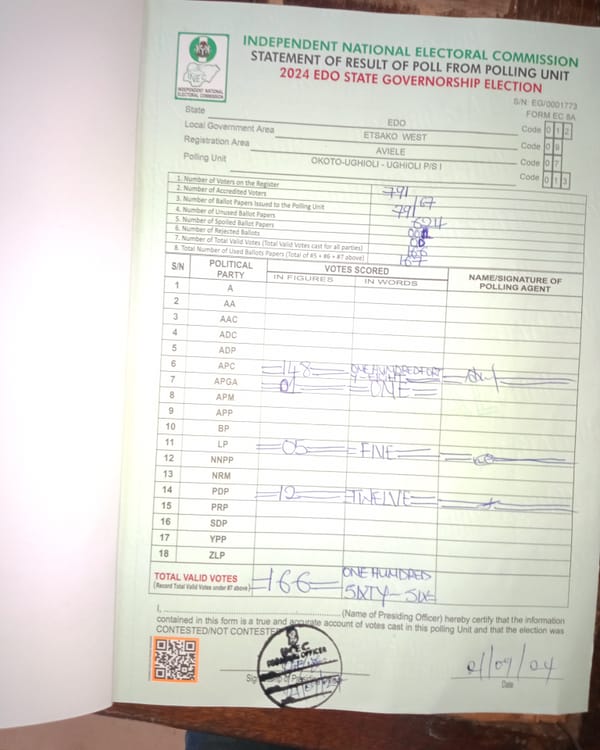 INDEPENDENT NATIONAL ELECTORAL COMMISSION
STATEMENT OF RESULT OF POLL FROM POLLING UNIT
2024 EDO STATE GOVERNORSHIP ELECTION
INEC
INDEPENDENT NATIONAL ELECTORAL COMMISSION
S/N: EG/0001773
FORM EC 8A
State EDO Code 0 1 2
Local Government Area ETSAKO WEST Code 0 9
Registration Area AVIELE Code 0 7
Polling Unit OKOTO-UGHIOLI - UGHIOLI P/S I Code 0 1 3
1. Number of Voters on the Register 791
2. Number of Accredited Voters 167
3. Number of Ballot Papers Issued to the Polling Unit 791
4. Number of Unused Ballot Papers 624
5. Number of Spoiled Ballot Papers
6. Number of Rejected Ballots
7. Number of Total Valid Votes (Total Valid Votes cast for all parties) 166
8. Total Number of Used Ballots Papers (Total of #5 + #6 + #7 above) 167
S/N POLITICAL PARTY VOTES SCORED NAME/SIGNATURE OF POLLING AGENT
IN FIGURES IN WORDS
1 A
2 AA
3 AAC
4 ADC
5 ADP
6 APC 148 ONE HUNDRED FORTY-EIGHT
7 APGA 01 ONE
8 APM
9 APP
10 BP
11 LP 05 FIVE
12 NNPP
13 NRM
14 PDP 12 TWELVE
15 PRP
16 SDP
17 YPP
18 ZLP
TOTAL VALID VOTES 166 ONE HUNDRED
(Record Total Valid Votes under #7 above) SIXTY-SIX
I, (Name of Presiding Officer) hereby certify that the information
contained in this form is a true and accurate account of votes cast in this polling Unit and that the election was
CONTESTED/NOT CONTESTED
INEC
Date